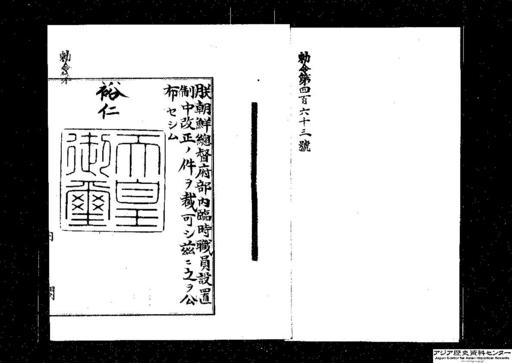 勅令第四百六十三號
朕朝鮮總督府部內臨時職員設置
制中改正ノ件ヲ裁可シ茲ニ之ヲ公
布セシム
裕仁
天皇
御璽
勅令第
アジア歴史資料センター
Japan Center for Asian Historical Records